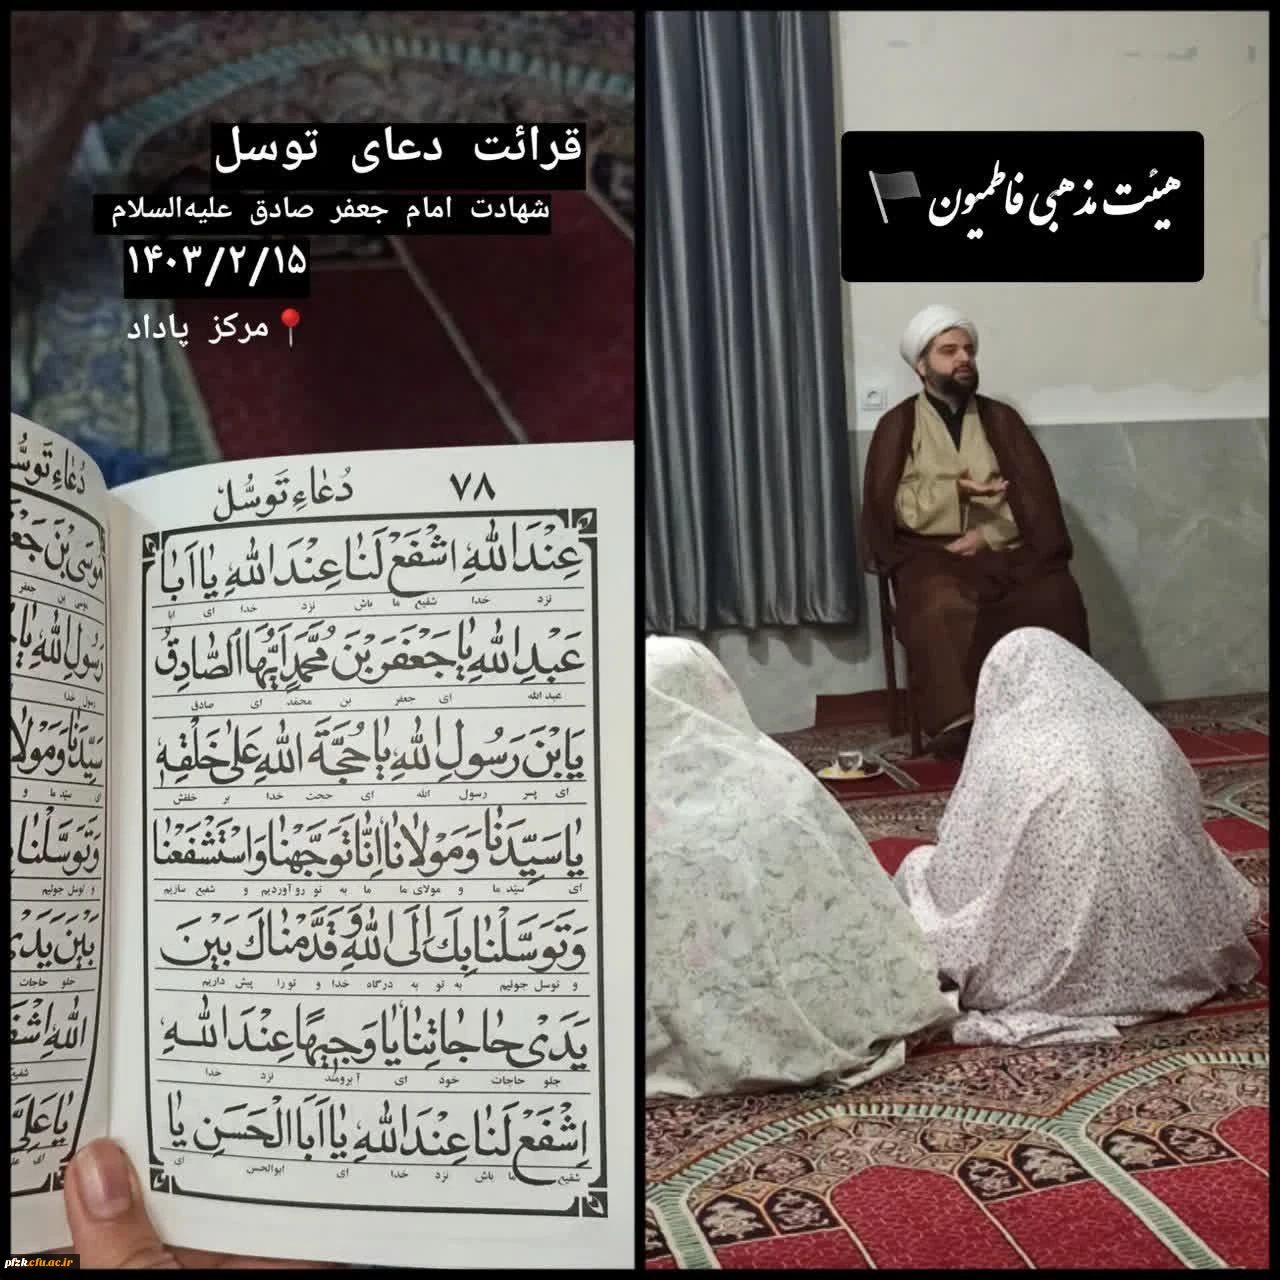 قرائت دعای توسل
شهادت امام جعفر صادق علیه‌السلام
۱۴۰۳/۲/۱۵
مرکز پاداد
هیئت مذهبی فاطمیون
دُعٰاءِ تَوَسُّلْ
۷۸
عِنْدَ اللّٰهِ اشْفَعْ لَنٰا عِنْدَ اللّٰهِ یٰا اَبٰا
نزد خدا شفیع ما باش نزد خدا ای ابا
عَبْدِ اللّٰهِ یٰا جَعْفَرَ بْنَ مُحَمَّدٍ اَیُّهَا الصّٰادِقُ
عبدالله ای جعفر بن محمّد ای صادق
یَا بْنَ رَسُولِ اللّٰهِ یٰا حُجَّةَ اللّٰهِ عَلیٰ خَلْقِهِ
ای پسر رسول الله ای حجت خدا بر خلقش
یٰا سَیِّدَنٰا وَ مَوْلٰانٰا اِنّٰا تَوَجَّهْنٰا وَ اسْتَشْفَعْنٰا
ای سیّد ما و مولای ما ما به تو رو آوردیم و شفیع سازیم
وَ تَوَسَّلْنٰا بِكَ اِلَى اللّٰهِ وَ قَدَّمْنٰاكَ بَیْنَ
و توسل جوئیم به تو به درگاه خدا و تو را پیش داریم
یَدَیْ حٰاجٰاتِنٰا یٰا وَجیهًا عِنْدَ اللّٰهِ
جلو حاجات خود ای آبرومند نزد خدا
اِشْفَعْ لَنٰا عِنْدَ اللّٰهِ یٰا اَبَا الْحَسَنِ یٰا
شفیع ما باش نزد خدا ای ابوالحسن ای
pfzk.cfu.ac.ir